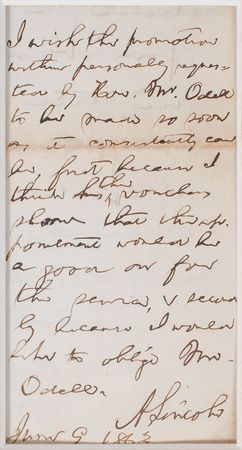 I wish the promotion
within personally reques-
ted by Hon. Mr. Odell
to be made so soon
as it consistently can
be, first because I
think the vouchers
show that the ap-
pointment would be
a good one for
the service, & second
ly because I would
like to oblige Mr.
Odell.
A. Lincoln
June 9. 1863